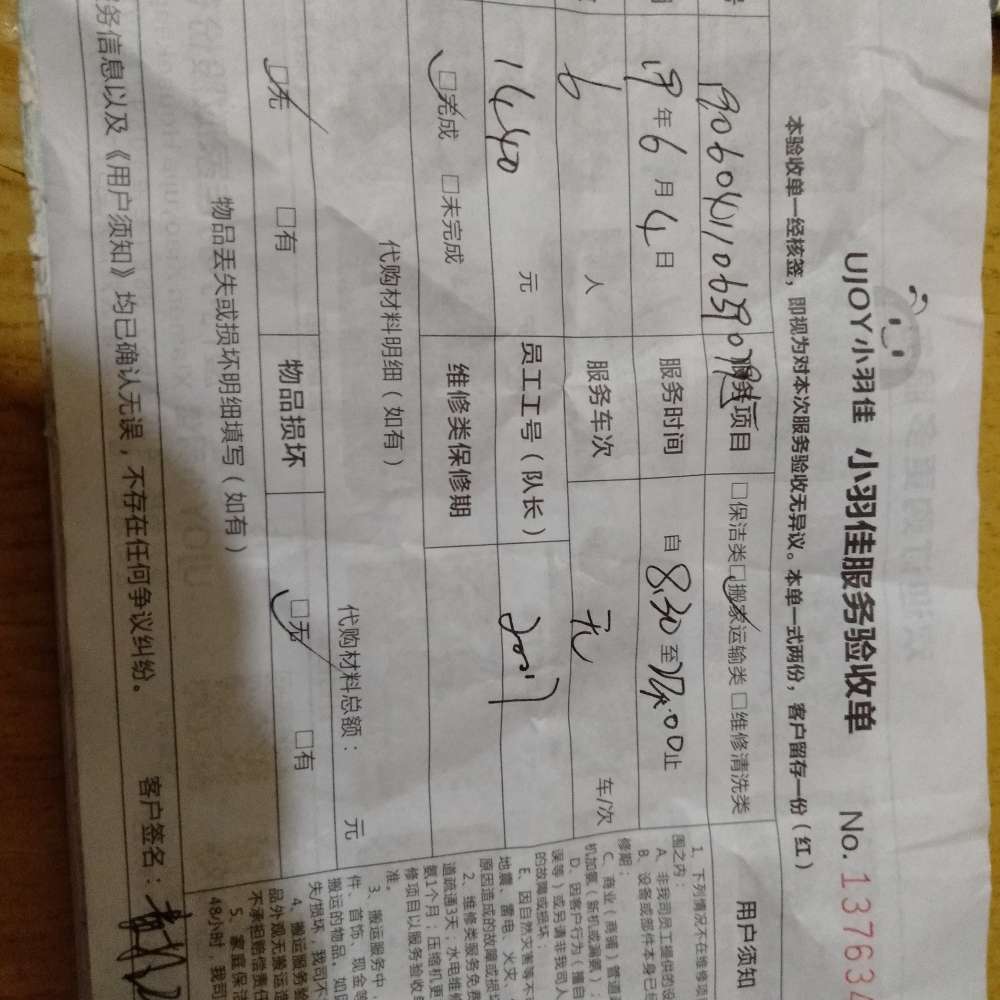 UJOY小羽佳 小羽佳服务验收单 No. 137634
本验收单一经核签，即视为对本次服务验收无异议。本单一式两份，客户留存一份（红）
服务项目 □保洁类□搬家运输类□维修清洗类
19年6月4日 服务时间 自8:30至
止
6人 服务车次 无 车/次
1440元 员工工号（队长）
□完成 □未完成 维修类保修期
代购材料明细（如有） 代购材料总额： 元
□无 □有 物品损坏 □无 □有
物品丢失或损坏明细填写（如有）
务信息以及《用户须知》均已确认无误，不存在任何争议纠纷。 客户签名：
用户须知
1、下列情况不在维修项
围之内：
A、非我司员工提供的设
B、设备或部件本身已经
修期；
C、商业（商铺）管道疏
机加氨（新机或漏氨）；
D、因客户行为（擅自
误等）或另请非我司人
的故障或损坏；
E、因自然灾害等不
地震、雷电、火灾、
原因造成的故障或损坏
2、维修类服务免费
道疏通3天，水电维修
氨1个月；压缩机更
修项目以服务验收单
准。
3、搬运服务中，
件、首饰、现金等
搬运的物品，如因
失/损坏，我司不
4、搬运服务验
品外观无搬运造
不承担赔偿责任
5、家庭保洁
48小时，我司